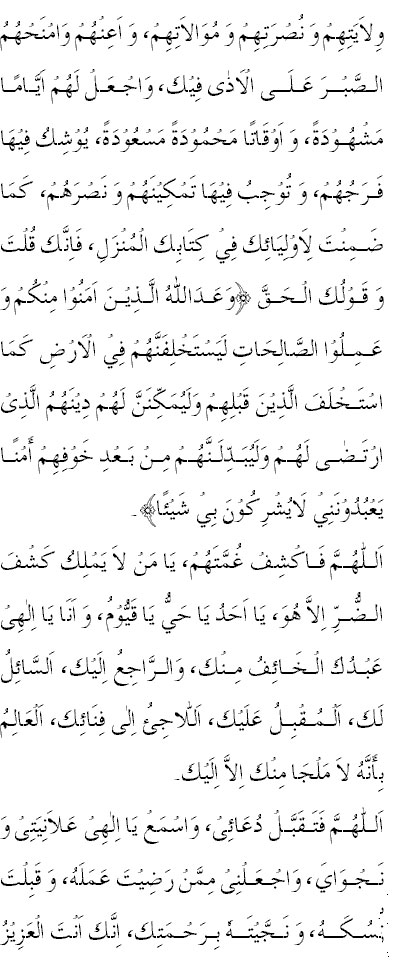 وِلَايَتِهِمْ وَ نُصْرَتِهِمْ وَ مُوَالَاتِهِمْ، وَ اَعِنْهُمْ وَامْنَحْهُمُ
الصَّبْرَ عَلَى الْاَذٰى فِيْكَ، وَاجْعَلْ لَهُمْ اَيَّامًا
مَشْهُوْدَةً، وَ اَوْقَاتًا مَحْمُوْدَةً مَسْعُوْدَةً، يُوْشِكُ فِيْهَا
فَرَجُهُمْ، وَ تُوْجِبُ فِيْهَا تَمْكِيْنَهُمْ وَ نَصْرَهُمْ، كَمَا
ضَمِنْتَ لِاَوْلِيَائِكَ فِيْ كِتَابِكَ الْمُنْزَلِ، فَاِنَّكَ قُلْتَ
وَ قَوْلُكَ الْحَقَّ ﴿وَعَدَاللّٰهُ الَّذِيْنَ اٰمَنُوْا مِنْكُمْ وَ
عَمِلُوْا الصَّالِحَاتِ لَيَسْتَخْلِفَنَّهُمْ فِيْ الْاَرْضِ كَمَا
اسْتَخْلَفَ الَّذِيْنَ قَبْلِهِمْ وَلَيُمَكِّنَنَّ لَهُمْ دِيْنَهُمُ الَّذِىْ
ارْتَضٰى لَهُمْ وَلَيُبَدِّلَنَّهُمْ مِنْ بَعْدِ خَوْفِهِمْ أَمْنًا
يَعْبُدُوْنَنِيْ لَايُشْرِكُوْنَ بِيْ شَيْئًا﴾.
اَللّٰهُمَّ فَاكْشِفْ غُمَّتَهُمْ، يَا مَنْ لَا يَمْلِكُ كَشْفَ
الضُّرِّ اِلاَّ هُوَ، يَا اَحَدُ يَا حَيُّ يَا قَيُّوْمُ، وَ اَنَا يَا اِلٰهِىْ
عَبْدُكَ الْخَائِفُ مِنْكَ، وَالرَّاجِعُ اِلَيْكَ، اَلسَّائِلُ
لَكَ، اَلْمُقْبِلُ عَلَيْكَ، اَللَّاجِئُ اِلٰى فِنَائِكَ، اَلْعَالِمُ
بِأَنَّهُ لَا مَلْجَا مِنْكَ اِلاَّ اِلَيْكَ.
اَللّٰهُمَّ فَتَقَبَّلْ دُعَائِىْ، وَاسْمَعْ يَا اِلٰهِىْ عَلَانِيَتِىْ وَ
نَجْوَايَ، وَاجْعَلْنِىْ مِمَّنْ رَضِيْتَ عَمَلَهُ، وَ قَبِلْتَ
نُسُكَهُ، وَ نَجَّيْتَهُ بِرَحْمَتِكَ، اِنَّكَ اَنْتَ الْعَزِيْزُ